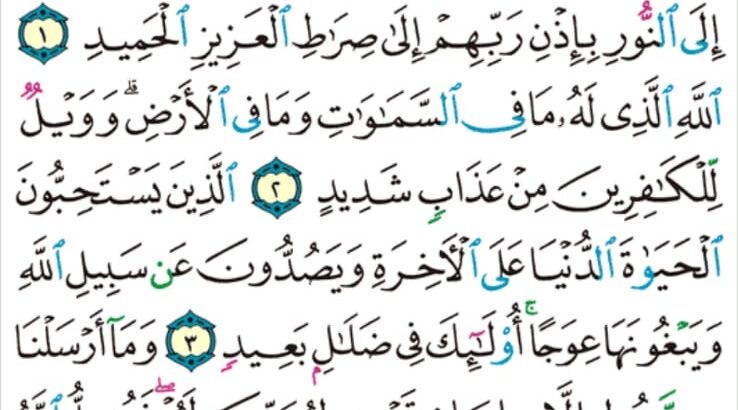 إِلَى ٱلنُّورِ بِإِذْنِ رَبِّهِمْ إِلَىٰ صِرَٰطِ ٱلْعَزِيزِ ٱلْحَمِيدِ ١
ٱللَّهِ ٱلَّذِى لَهُۥ مَا فِى ٱلسَّمَٰوَٰتِ وَمَا فِى ٱلْأَرْضِ ۗ وَوَيْلٌ
لِّلْكَٰفِرِينَ مِنْ عَذَابٍ شَدِيدٍ ٢ ٱلَّذِينَ يَسْتَحِبُّونَ
ٱلْحَيَوٰةَ ٱلدُّنْيَا عَلَى ٱلْأَخِرَةِ وَيَصُدُّونَ عَن سَبِيلِ ٱللَّهِ
وَيَبْغُونَهَا عِوَجًا ۚ أُو۟لَٰٓئِكَ فِى ضَلَٰلٍۭ بَعِيدٍ ٣ وَمَآ أَرْسَلْنَا